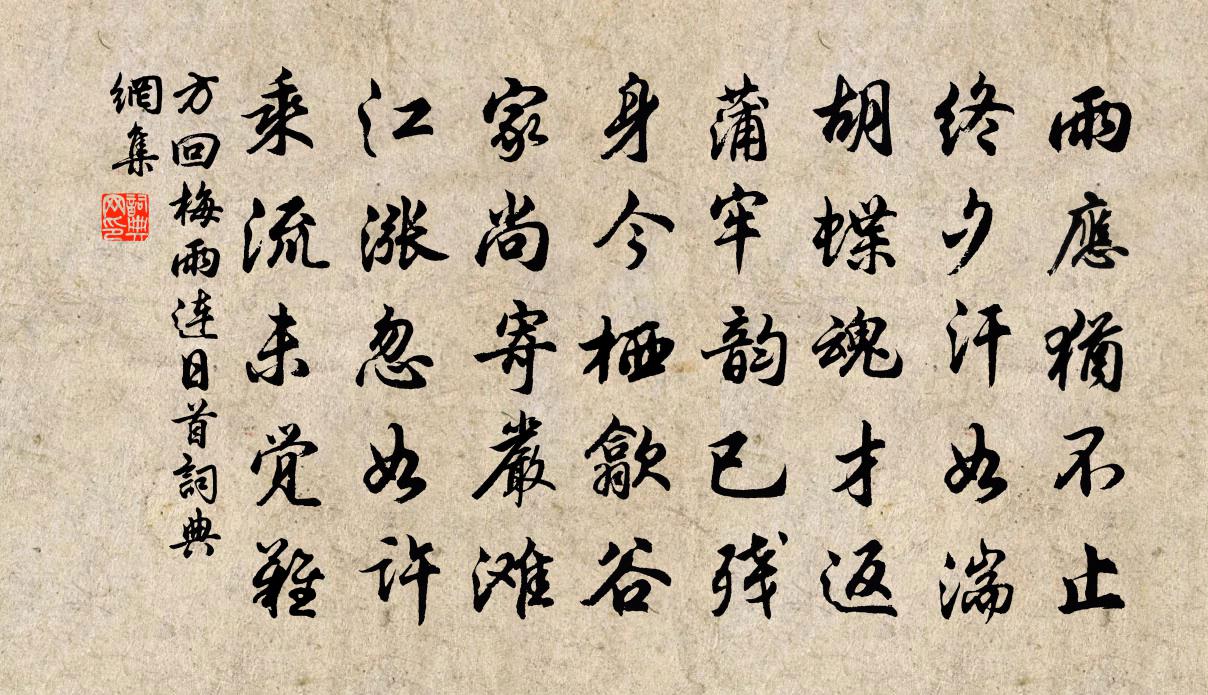 雨應猶不止
終夕汗如湍
胡蝶魂才返
蒲牢韵已残
身今栖歙谷
家尚寄嚴滩
江漲忽如许
乘流未覺難
方回梅雨连日首詞典
網集
詞典網印